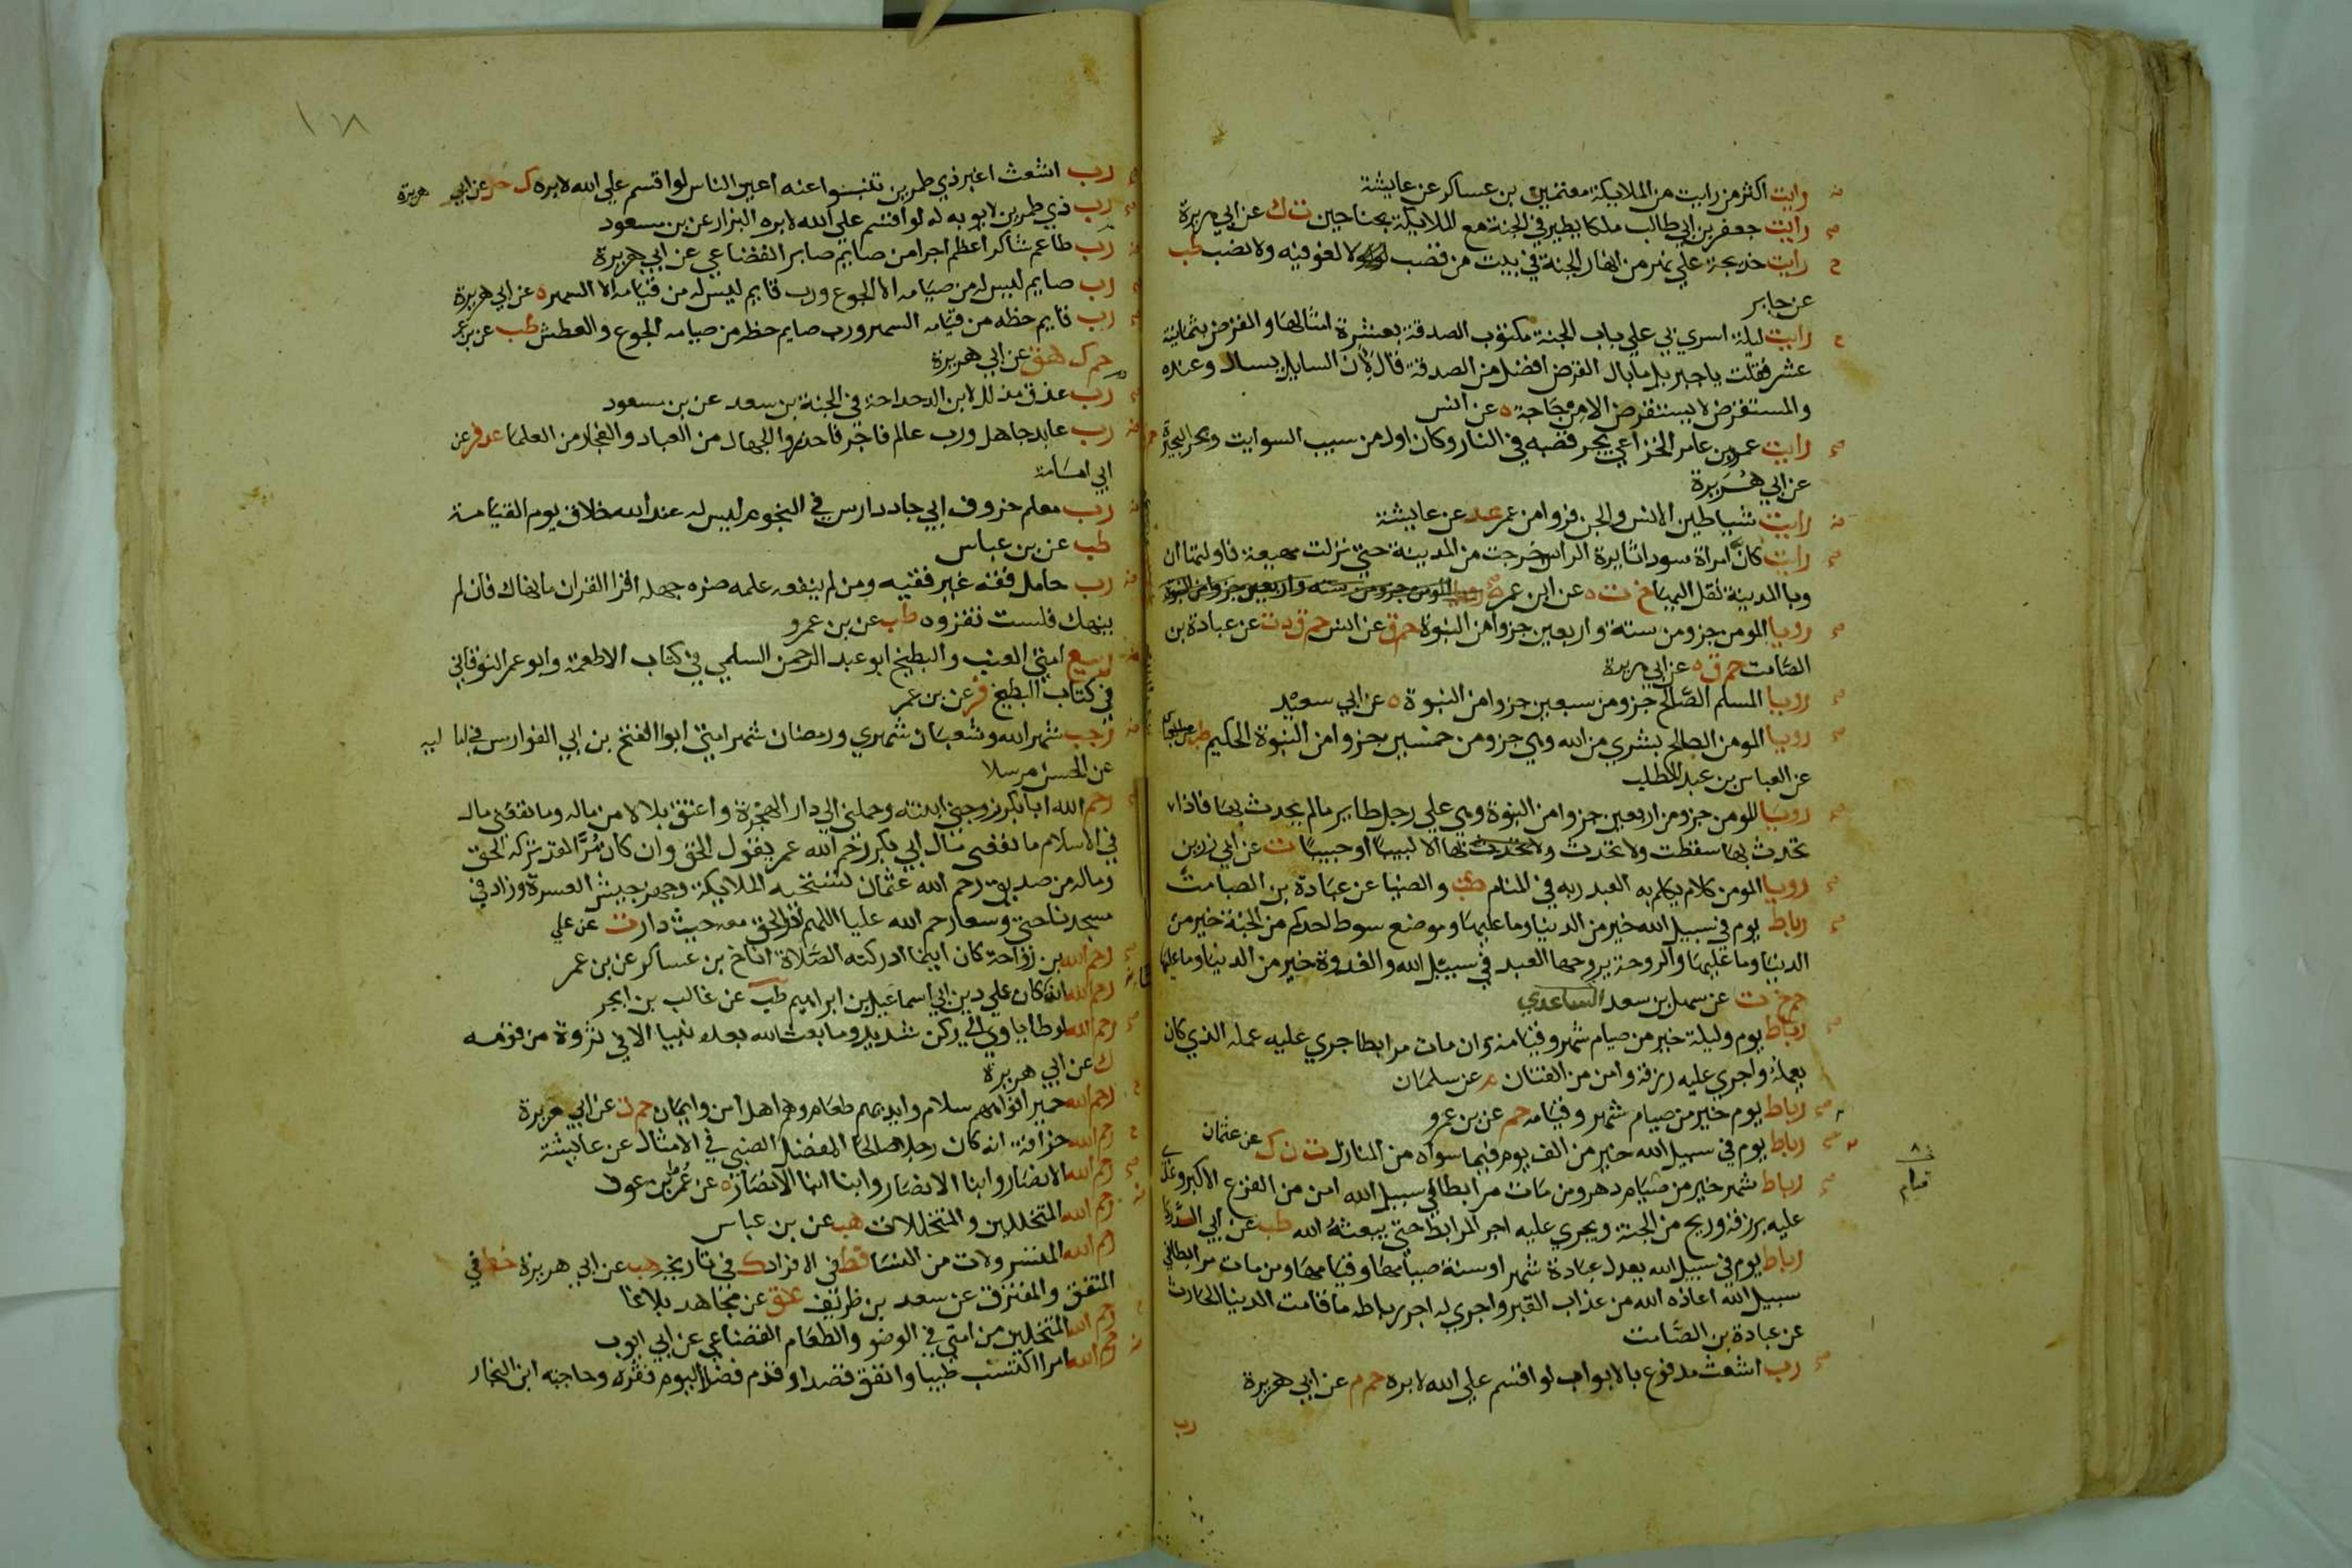 رايت اكثر من رايت من الملايكة معتمين بن عساكر عن عايشة
رايت جعفر بن ابي طالب ملكا يطير في الجنة مع الملايكة بجناحين ت ك عن ابي هريرة
رايت خديجة علي نهر من انهار الجنة في بيت من قصب لا لغو فيه ولا نصب طب
عن جابر
رايت ليلة اسري بي علي باب الجنة مكتوب الصدقة بعشرة امثالها والقرض بثمانية
عشر فقلت يا جبريل ما بال القرض افضل من الصدقة قال لأن السايل يسال وعنده
والمستقرض لا يستقرض الا من حاجة ه عن انس
رايت عمرو بن عامر الخزاعي يجر قصبه في النار وكان اول من سيب السوايب وبحر البحيرة حم
عن ابي هريرة
رايت شياطين الانس والجن فروا من عمر عد عن عايشة
رايت كأن امراة سودا ثايرة الراس خرجت من المدينة حتي نزلت مهيعة فاولتها ان
وبا المدينة نقل اليها خ ت ه عن ابن عمر
رويا المومن جزو من ستة واربعين جزوا من النبوة حم ق عن انس حم ق د ت عن عبادة بن
الصامت حم ق ه عن ابي هريرة
رويا المسلم الصالح جزو من سبعين جزوا من النبوة ه عن ابي سعيد
رويا المومن الصالح بشري من الله وهي جزو من خمسين جزوا من النبوة الحكيم طب
عن العباس بن عبد المطلب
رويا المومن جزو من اربعين جزوا من النبوة وهي علي رجل طاير مالم يحدث بها فاذا
تحدث بها سقطت ولا تحدث بها الا لبيبا او حبيبا ت عن ابي رزين
رويا المومن كلام يكلم به العبد ربه في المنام طب والضيا عن عبادة بن الصامت
رباط يوم في سبيل الله خير من الدنيا وما عليها وموضع سوط احدكم من الجنة خير من
الدنيا وما عليها والروحة يروحها العبد في سبيل الله والغدوة خير من الدنيا وما عليها
حم خ ت عن سهل بن سعد الساعدي
رباط يوم وليلة خير من صيام شهر وقيامه وان مات مرابطا جري عليه عمله الذي كان
يعمله واجري عليه رزقه وامن من الفتان م عن سلمان
رباط يوم خير من صيام شهر وقيامه حم عن بن عمرو
رباط يوم في سبيل الله خير من الف يوم فيما سواه من المنازل ت ن ك عن عثمان
رباط شهر خير من صيام دهر ومن مات مرابطا في سبيل الله امن من الفزع الاكبر وغدي
عليه برزقه وريح من الجنة ويجري عليه اجر المرابط حتي يبعثه الله طب عن ابي الدردا
رباط يوم في سبيل الله يعدل عبادة شهر او سنة صيامها وقيامها ومن مات مرابطا في
سبيل الله اعاذه الله من عذاب القبر واجري له اجر رباطه ما قامت الدنيا الحارث
عن عبادة بن الصامت
رب اشعث مدفوع بالابواب لو اقسم علي الله لابره حم م عن ابي هريرة
رب
١٠٨
رب اشعث اغبر ذي طمرين تنبوا عنه اعين الناس لو اقسم علي الله لابره ك حل عن ابي هريرة
رب ذي طمرين لا يوبه له لو اقسم علي الله لابره البزار عن بن مسعود
رب طاعم شاكر اعظم اجرا من صايم صابر القضاعي عن ابي هريرة
رب صايم ليس له من صيامه الا الجوع ورب قايم ليس له من قيامه الا السهر ه عن ابي هريرة
رب قايم حظه من قيامه السهر ورب صايم حظه من صيامه الجوع والعطش طب عن بن عمر
حم ك هق عن ابي هريرة
رب عذق مذلل لابن الدحداحة في الجنة بن سعد عن بن مسعود
رب عابد جاهل ورب عالم فاجر فاحذروا الجهال من العباد والفجار من العلما عد فر عن
ابي امامة
رب معلم حروف ابي جاد دارس في النجوم ليس له عند الله خلاق يوم القيامة
طب عن بن عباس
رب حامل فقه غير فقيه ومن لم ينفعه علمه ضره جهله اقرا القران ما نهاك فان لم
ينهك فلست تقروه طب عن بن عمرو
ربيع امتي العنب والبطيخ ابو عبد الرحمن السلمي في كتاب الاطعمة وابو عمر النوقاني
في كتاب البطيخ فر عن بن عمر
رجب شهر الله وشعبان شهري ورمضان شهر امتي ابو الفتح بن ابي الفوارس في اماليه
عن الحسن مرسلا
رحم الله ابا بكر زوجني ابنته وحملني الي دار الهجرة واعتق بلالا من ماله وما نفعني مال
في الاسلام ما نفعني مال ابي بكر رحم الله عمر يقول الحق وان كان مرا لقد تركه الحق
وماله من صديق رحم الله عثمان تستحيه الملايكة وجهز جيش العسرة وزاد في
مسجدنا حتي وسعنا رحم الله عليا اللهم ادر الحق معه حيث دار ت عن علي
رحم الله بن رواحة كان اينما ادركته الصلاة اناخ بن عساكر عن بن عمر
رحم الله انه كان علي دين ابي اسماعيل بن ابراهيم طب عن غالب بن ابجر
رحم الله لوطا ياوي الي ركن شديد وما بعث الله بعده نبيا الا في ثروة من قومه
ك عن ابي هريرة
رحم الله حمير افواههم سلام وايديهم طعام وهم اهل امن وايمان حم ت عن ابي هريرة
رحم الله خرافة انه كان رجلا صالحا المفضل الضبي في الامثال عن عايشة
رحم الله الانصار وابنا الانصار وابنا ابنا الانصار ه عن عمرو بن عوف
رحم الله المتخللين والمتخللات هب عن بن عباس
رحم الله المتسرولات من النسا قط في الافراد ك في تاريخه هب عن ابي هريرة خط في
المتفق والمفترق عن سعد بن طريف عق عن مجاهد بلاغا
رحم الله المتخللين من امتي في الوضو والطعام القضاعي عن ابي ايوب
رحم الله امرا اكتسب طيبا وانفق قصدا وقدم فضلا ليوم فقره وحاجته ابن النجار